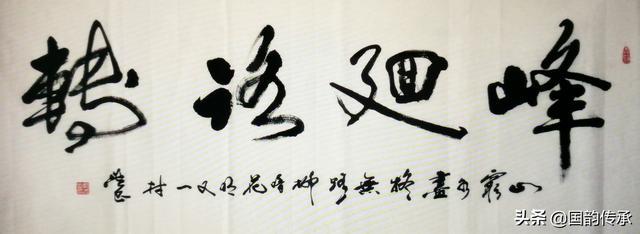 峰廻路轉
山窮水盡疑無路柳暗花明又一村
头条 @国韵传承